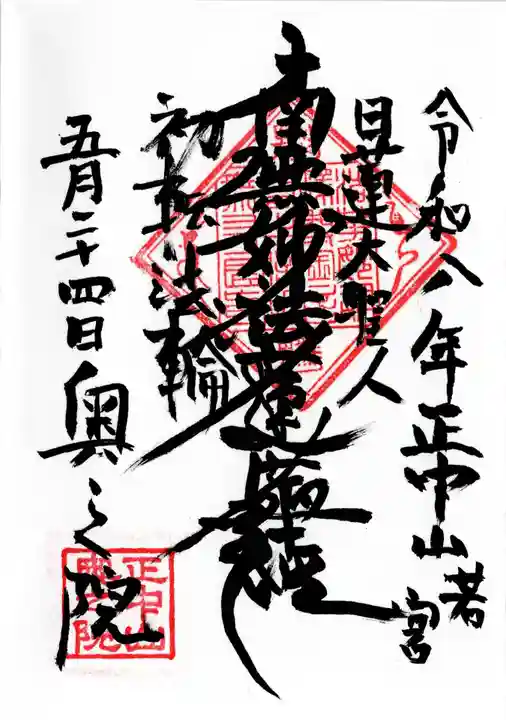 令和八年正中山若宮
日蓮大聖人
南無妙法蓮華経
初転法輪
五月二十四日奥之院
正中山
奥之院